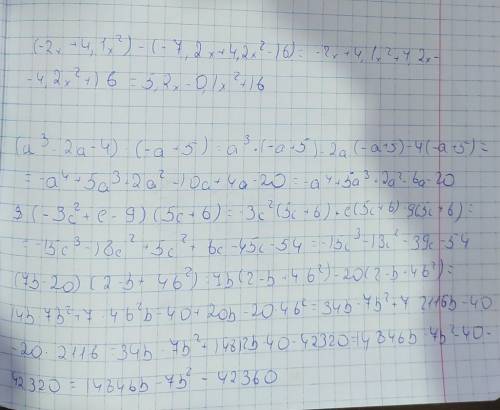 (-2x + 4,1x²) - (-7,2x + 4,2x² - 16) = -2x + 4,1x² + 7,2x -
- 4,2x² + 16 = 5,2x - 0,1x² + 16
(a³ - 2a - 4) · (-a + 5) = a³ · (-a + 5) - 2a (-a + 5) - 4(-a + 5) =
= -a⁴ + 5a³ + 2a² - 10a + 4a - 20 = -a⁴ + 5a³ + 2a² - 6a - 20
3 (-3c² + c - 9) (5c + 6) = -3c² (5c + 6) + c(5c + 6) - 9(5c + 6) =
= -15c³ - 18c² + 5c² + 6c - 45c - 54 = -15c³ - 13c² - 39c - 54
(7b - 20) (2 - b + 4b²) = 7b (2 - b + 4b²) - 20 (2 - b + 4b²) =
14b - 7b² + 7 · 4b² b - 40 + 20b - 20 · 4b² = 34b - 7b² + 7 · 2116b - 40
- 20 · 2116 = 34b - 7b² + 14812b - 40 - 42320 = 14846b - 7b² - 40 -
42320 = 14846b - 7b² - 42360